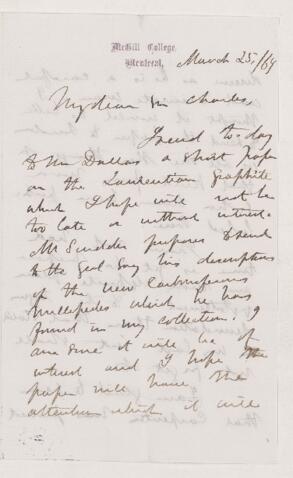 McGill College,
Montreal,
March 25/69
My dear Sir Charles,
I send to-day
to Mr Dallas a short paper
on the Laurentian Graphite
which I hope will not be
too late or without interest.
Mr Scudder proposes to send
to the Geol Soc his descriptions
of the new Carboniferous
Millepedes which he has
found in my collection. I
am sure it will be of
interest and I hope the
paper will have the
attention which it will